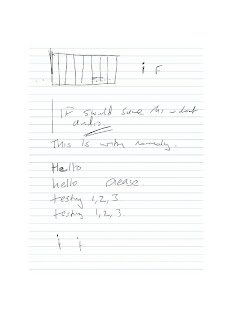 i F
IF should save his
This is writing
Hello
hello please
testing 1,2,3
testing 1,2,3.
i i